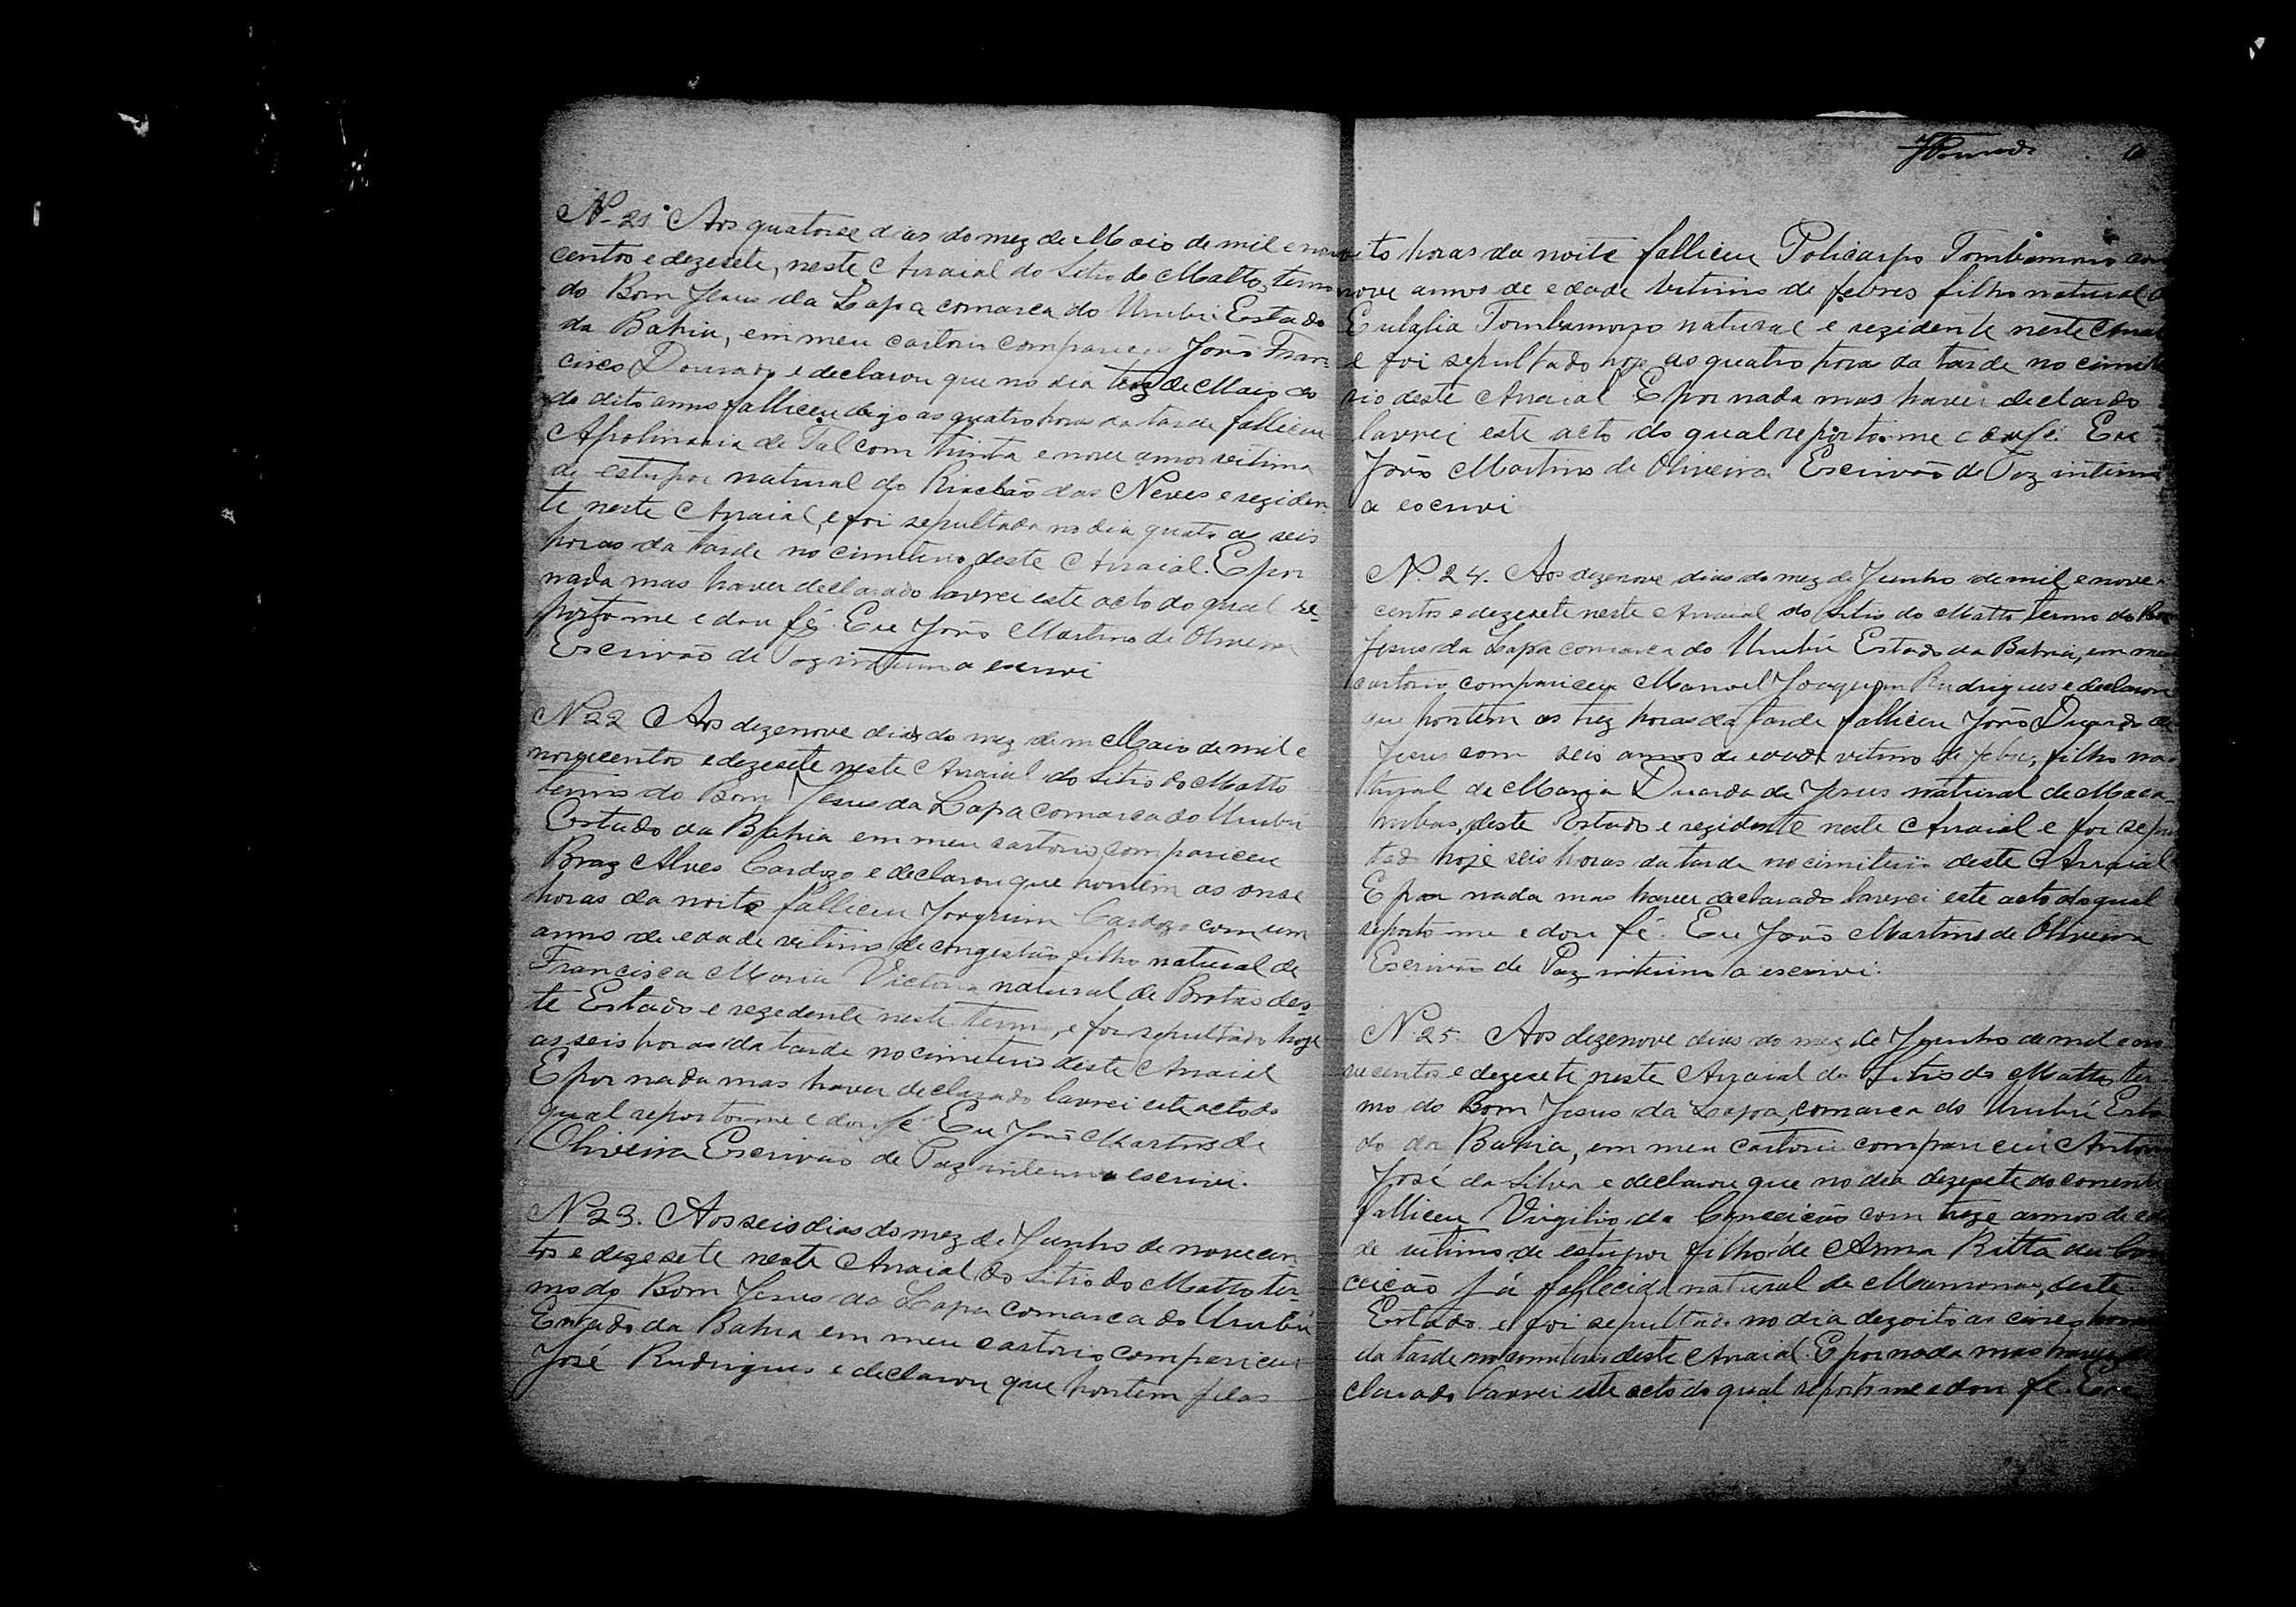 Nº 21 Aos quatorse dias do mez de Maio de mil e nove
centos e dezesete, neste Arraial do Sitio do Matto, termo
do Bom Jesus da Lapa comarca do Urubú Estado
da Bahia, em meu cartorio compareceu João Fran-
cisco Dourado e declarou que no dia trez de Maio do
do dito anno falliceu digo as quatro horas da tarde falliceu
Apolinaria de Tal com trinta e nove annos vitima
de estupor natural do Riachão das Neves e reziden
te neste Arraial, e foi sepultada no dia quatro as seis
horas da tarde no cimiterio deste Arraial. E por
nada mas haver declarado lavrei este acto do qual re-
porto me e dou fé. Eu João Martins de Oliveira
Escrivão de Paz interino a escrivi
Nº 22 Aos dezenove dias do mez de m Maio de mil e
novecentos e dezesete neste Arraial do Sitio do Matto
termo do Bom Jesus da Lapa comarca do Urubú
Estado da Bahia em meu cartorio compariceu
Braz Alves Cardozo e declarou que hontem as onse
horas da noite falliceu Joaquim Cardozo com um
anno de edade vitimo de congestão filho natural de
Francisca Maria Victoria natural de Brotas des-
te Estado e rezedente neste termo, e foi sepultado hoje
as seis horas da tarde no cimiterio deste Arraial
E por nada mas haver declarado lavrei este acto do
qual reporto-me e dou fé Eu João Martins de
Oliveira Escrivão de Paz interino a escrivi.
Nº 23. Aos seis dias do mez de Junho de novecen
tos e dezesete neste Arraial do Sitio do Matto ter-
mo do Bom Jesus da Lapa comarca do Urubú
Estado da Bahia em meu cartorio compariceu
José Rudrigues e declarou que hontem pelas
oito horas da noite falliceu Policarpo Tombamorro com
nove annos de edade vitimo de febres filho natural
Eulalia Tombamorro natural e rezidente neste Arraial
e foi sepultado hoje as quatro horas da tarde no cimite
rio deste Arraial E por nada mas haver declarado
lavrei este acto do qual reporto-me e dou fé. Eu
João Martins de Oliveira Escrivão de Paz interino
a escrivi
Nº 24. Aos dezenove dias do mez de Junho de mil e nove-
centos e dezesete neste Arraial do Sitio do Matto termo do Bom
Jesus da Lapa comarca do Urubú Estado da Bahia, em meu
cartorio compariceu Manoel Joaquim Rudrigues e declarou
que hontem as trez horas da tarde falliceu João Duardo de
Jesus com seis annos de edade vitimo de febre, filho na-
tural de Maria Duarda de Jesus natural de Maca-
hubas, deste Estado e rezidente neste Arraial e foi sepul
tado hoje seis horas da tarde no cimiterio deste Arraial
E por nada mas haver declarado lavrei este acto do qual
reporto me e dou fé. Eu João Martins de Oliveira
Escrivão de Paz interino a escrivi.
Nº 25 Aos dezenove dias do mez de Junho de mil e no
vecentos e dezesete neste Arraial do Sitio do Matto, ter-
mo do Bom Jesus da Lapa, comarca do Urubú Esta
do da Bahia, em meu cartorio compareceu Antonio
José da Silva e declarou que no dia dezesete do corrente
falliceu Virgilio da Conceicão com treze annos de eda
de vitimo de estupor filho de Anna Ritta da Con
ceicão já fallecida natural de Mamonas, deste
Estado e foi sepultado no dia dezoito as cinco horas
da tarde no cimiterio deste Arraial. E por nada mas haver de
clarado lavrei este acto do qual reporto me e dou fé. Eu